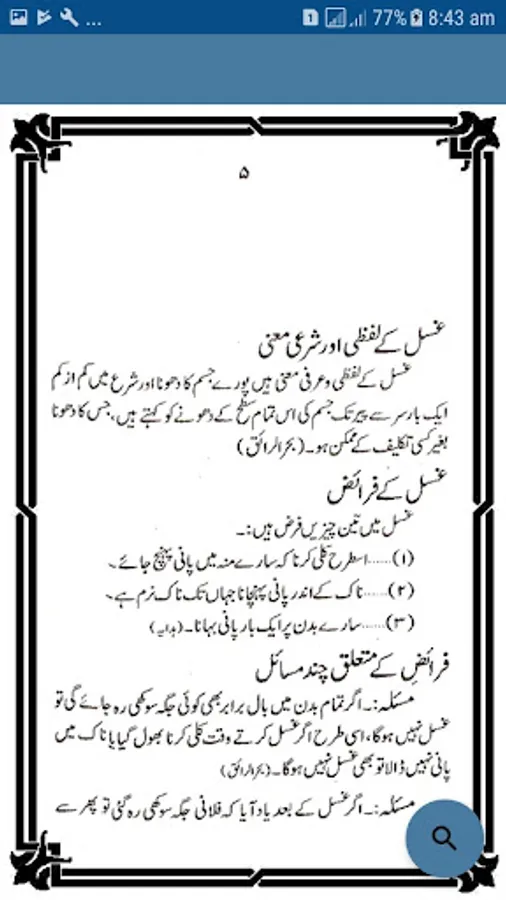 ... 77% 8:43 am
۵
غسل کے لفظی اور شرعی معنی
غسل کے لفظی و عرفی معنی ہیں پورے جسم کا دھونا اور شرع میں کم از کم
ایک بار سر سے پیر تک جسم کی اس تمام سطح کے دھونے کو کہتے ہیں، جس کا دھونا
بغیر کسی تکلیف کے ممکن ہو۔ (بحرالرائق)
غسل کے فرائض
غسل میں تین چیزیں فرض ہیں:۔
(۱)......اسطرح کلی کرنا کہ سارے منہ میں پانی پہنچ جائے۔
(۲)......ناک کے اندر پانی پہنچانا جہاں تک ناک نرم ہے۔
(۳)......سارے بدن پر ایک بار پانی بہانا۔ (ہدایہ)
فرائض کے متعلق چند مسائل
مسئلہ:۔ اگر تمام بدن میں بال برابر بھی کوئی جگہ سوکھی رہ جائے گی تو
غسل نہیں ہوگا، اسی طرح اگر غسل کرتے وقت کلی کرنا بھول گیا یا ناک میں
پانی نہیں ڈالا تو بھی غسل نہیں ہوگا۔ (بحرالرائق)
مسئلہ:۔ اگر غسل کے بعد یاد آیا کہ فلانی جگہ سوکھی رہ گئی تو پھر سے